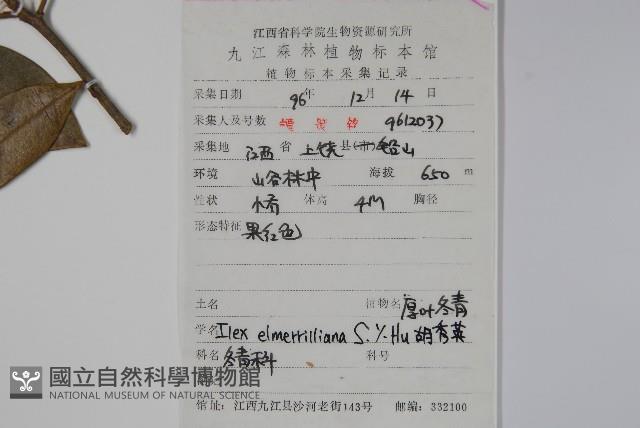 江西省科学院生物资源研究所
九江森林植物标本馆
植物标本采集记录
采集日期 96年 12月 14日
采集人及号数 谭策铭 9612037
采集地 江西省 上饶县(市) 铅山
环境 山谷林中 海拔 650 m
性状 小乔 体高 4M 胸径
形态特征 果红色
土名 植物名 厚叶冬青
学名 Ilex elmerrilliana S.Y.Hu 胡秀英
科名 冬青科 科号
國立自然科學博物館
NATIONAL MUSEUM OF NATURAL SCIENCE
馆址:江西九江县沙河老街143号 邮编:332100